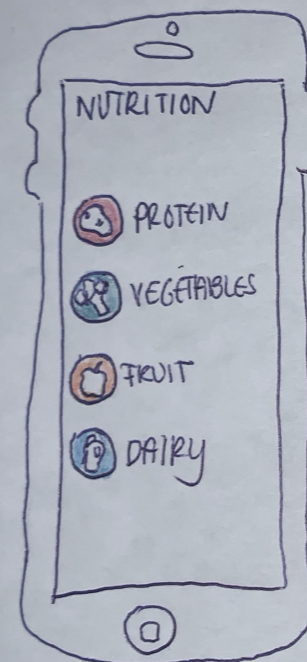 NUTRITION
PROTEIN
VEGETABLES
FRUIT
DAIRY